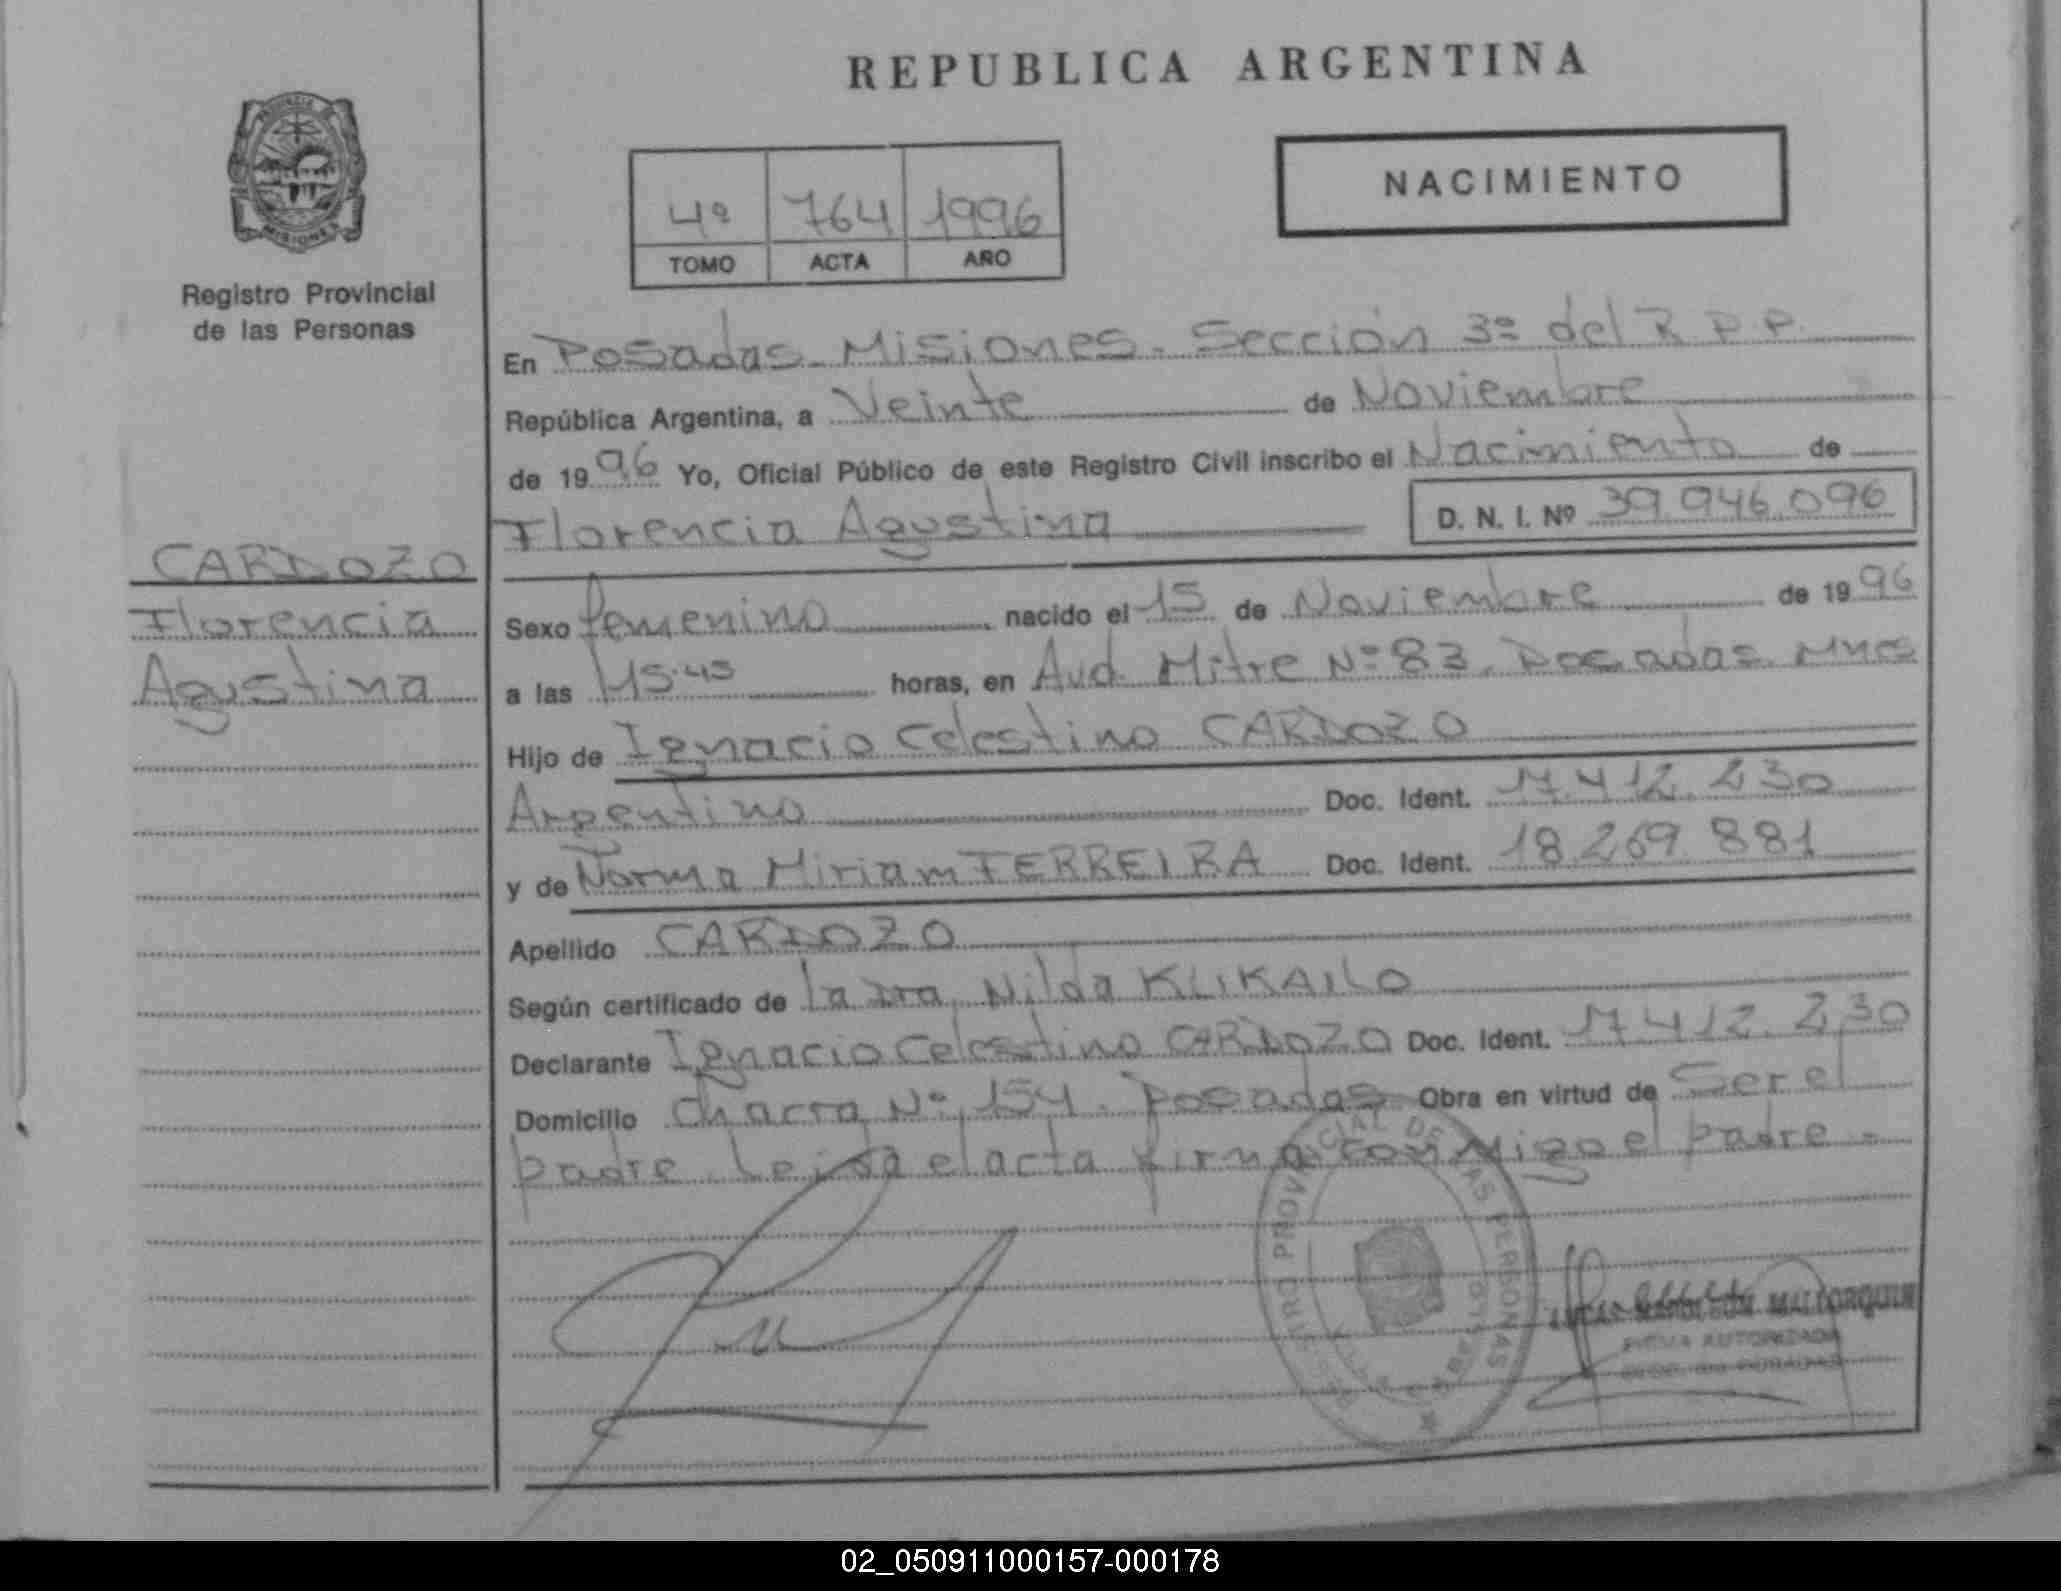 REPUBLICA ARGENTINA
NACIMIENTO
4º 764 1996
TOMO ACTA AÑO
MISIONES
Registro Provincial
de las Personas
En Posadas Misiones. Sección 3º del R.P.P.
República Argentina, a Veinte de Noviembre
de 1996 Yo, Oficial Público de este Registro Civil inscribo el Nacimiento de
Florencia Agustina D. N. I. Nº 39.946.096
CARDOZO
Florencia
Agustina
Sexo femenino nacido el 15 de Noviembre de 1996
a las 15:45 horas, en Avd. Mitre Nº 83. Posadas Mnes
Hijo de Ignacio Celestino CARDOZO
Argentino Doc. Ident. 17.412.230
y de Norma Miriam FERREIRA Doc. Ident. 18.269.881
Apellido CARDOZO
Según certificado de la Dra. Nilda KLIKAILO
Declarante Ignacio Celestino CARDOZO Doc. Ident. 17.412.230
Domicilio Chacra Nº 154. Posadas Obra en virtud de Ser el
padre. Leida el acta firma conmigo el padre.
REGISTRO PROVINCIAL DE LAS PERSONAS
MALLORQUIN
FIRMA AUTORIZADA
POSADAS
02_050911000157-000178